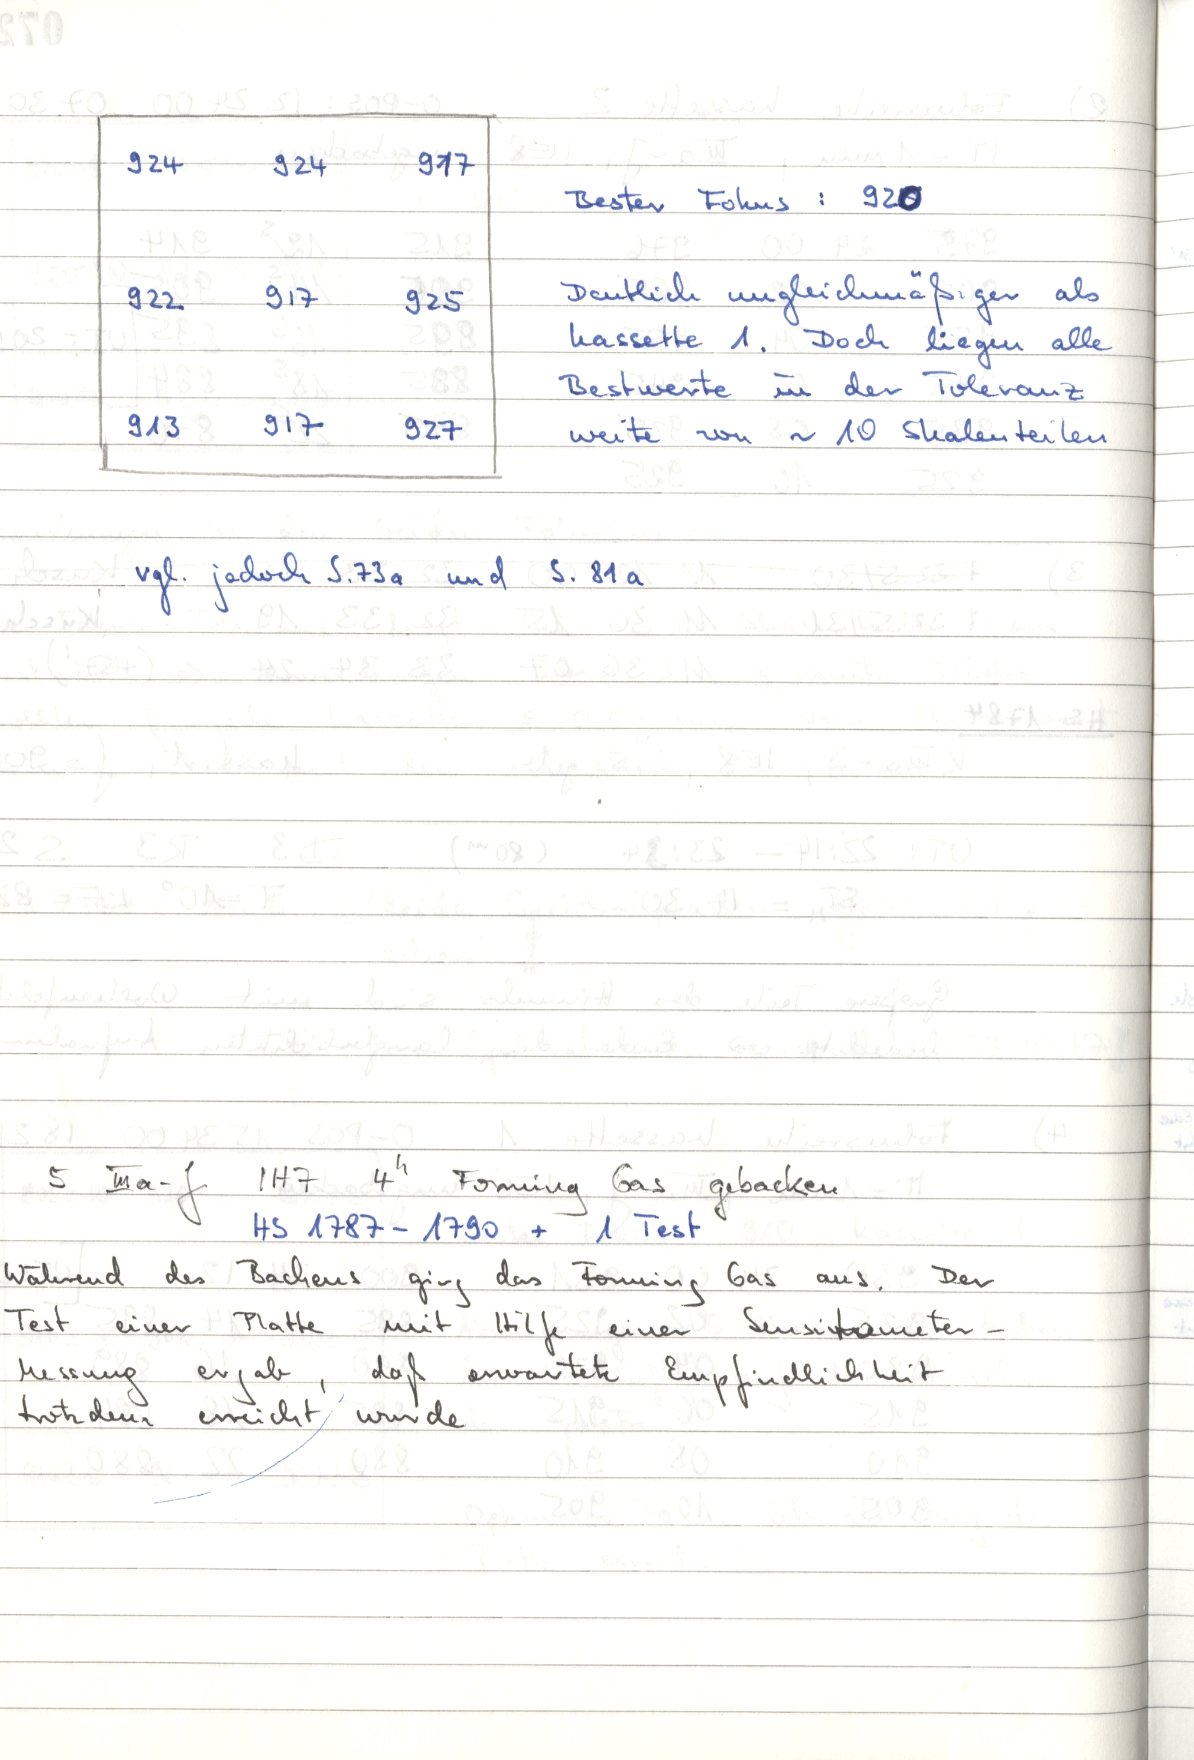 924 924 917
Bester Fokus : 920
922 917 925
Deutlich ungleichmäßiger als
Kassette 1. Doch liegen alle
Bestwerte in der Toleranz
913 917 927
weite von ~ 10 Skalenteilen
vgl. jedoch S.73a und S. 81a
5 IIIa-J 1H7 4h Forming Gas gebacken
HS 1787 - 1790 + 1 Test
Während des Backens ging das Forming Gas aus. Der
Test einer Platte mit Hilfe einer Sensitometer-
Messung ergab, daß erwartete Empfindlichkeit
trotzdem erreicht wurde